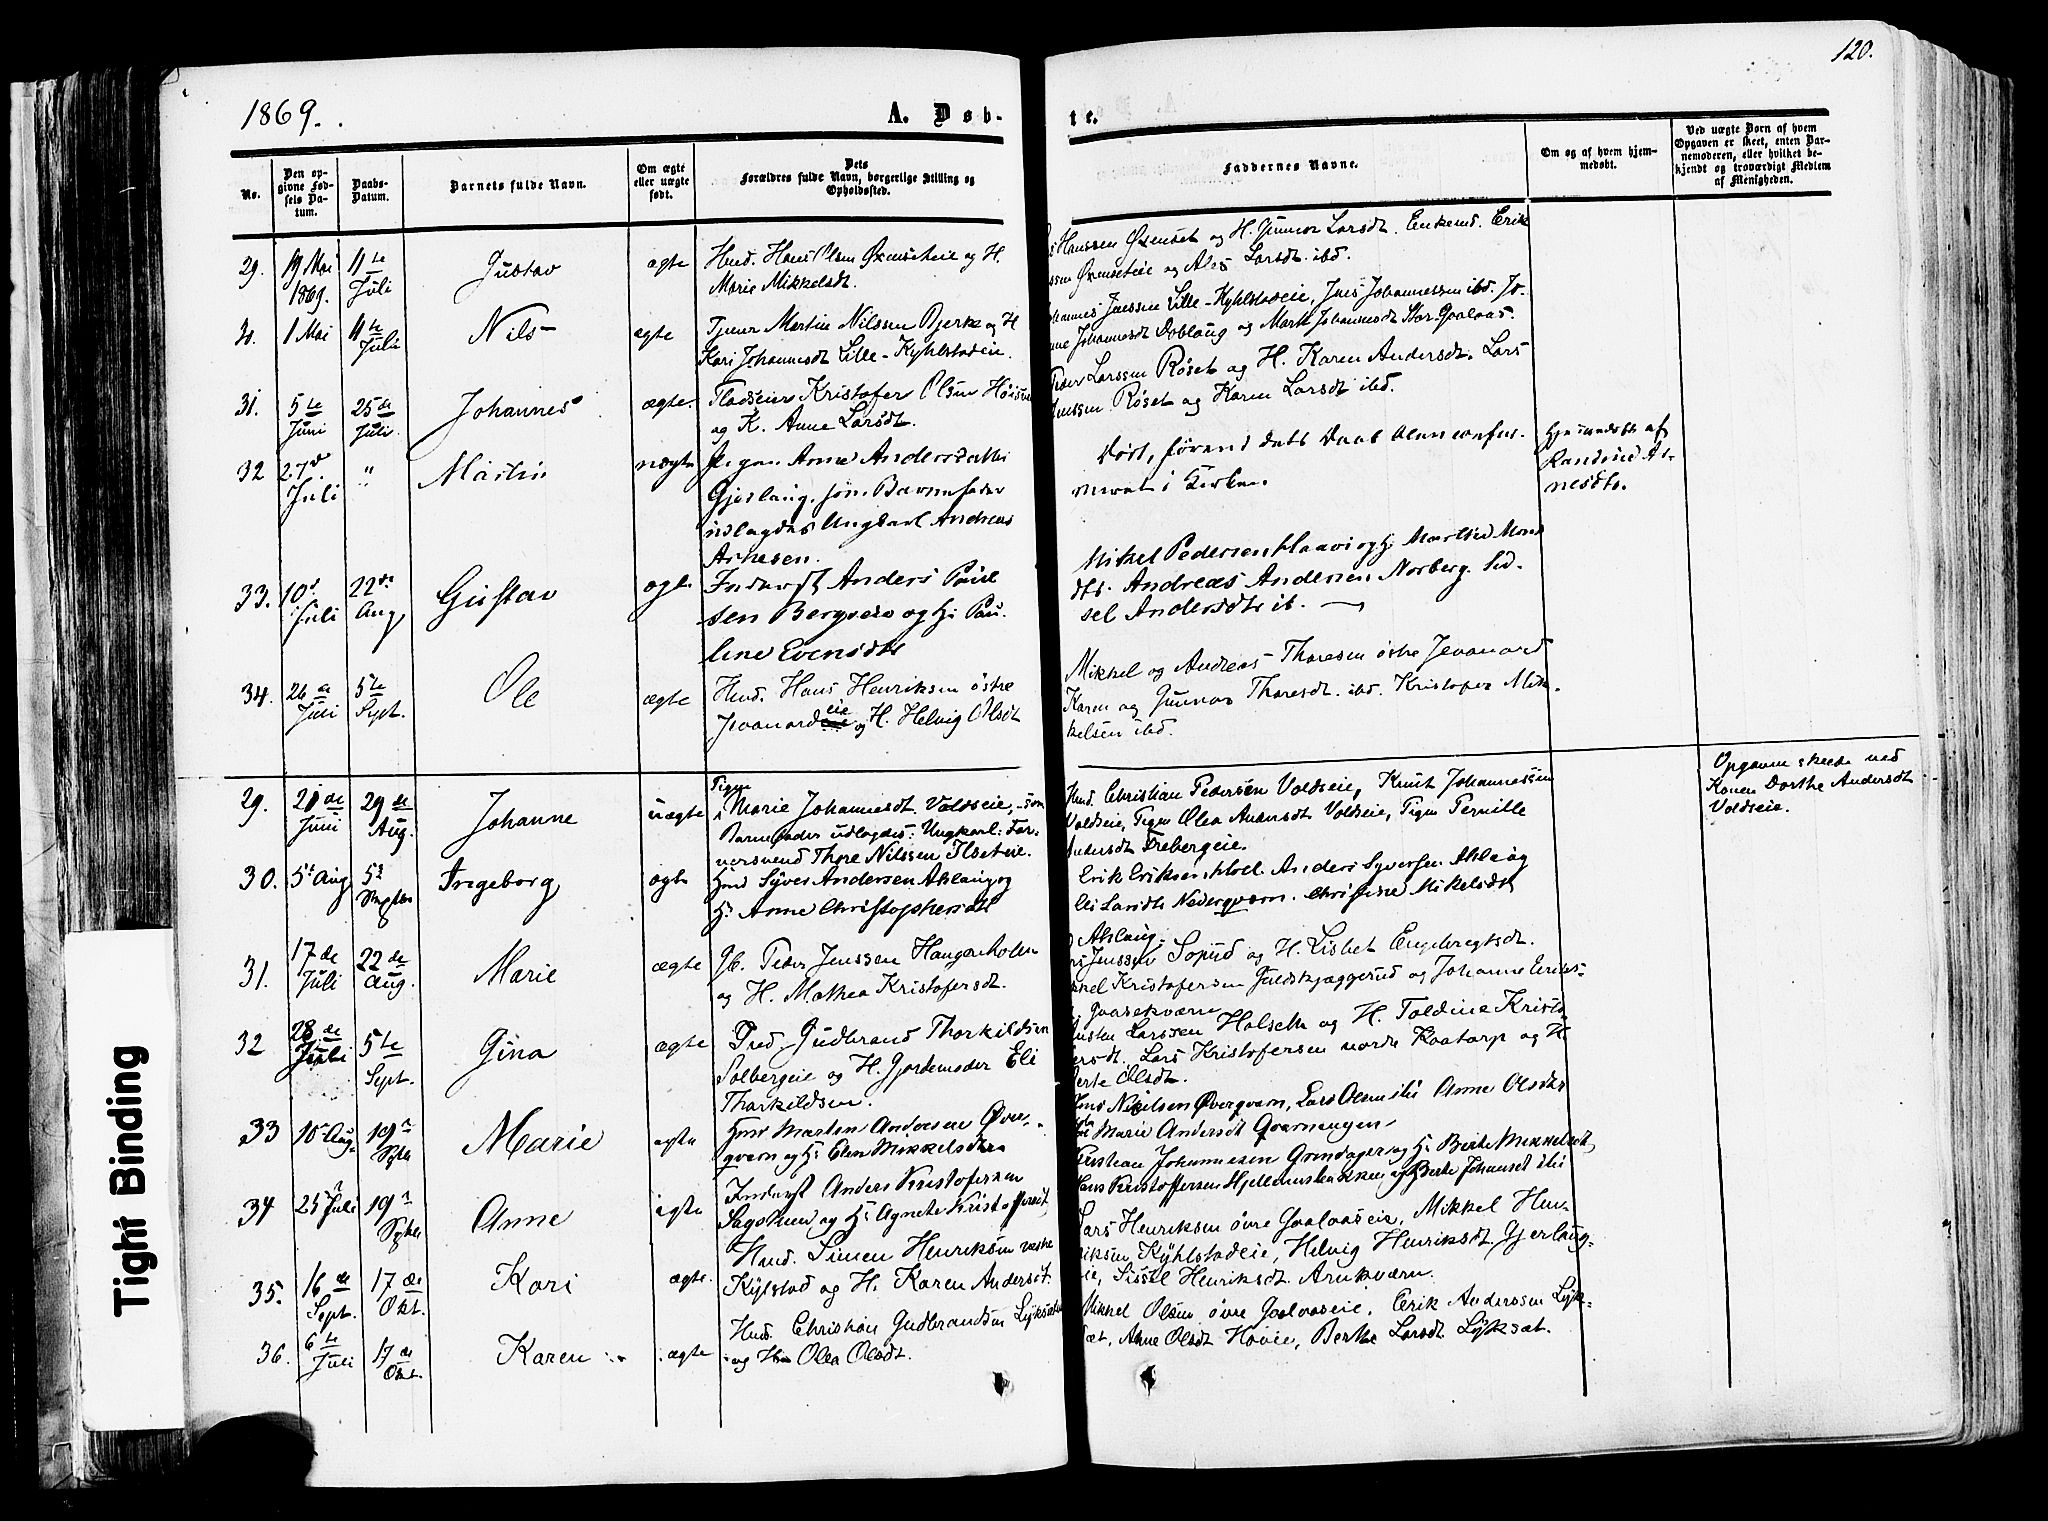 120.
1869.
A. Døb-
te.
No.
Den op-
givne Fød-
sels Da-
tum.
Daabs-
Datum.
Barnets fulde Navn.
Om ægte
eller uægte
født.
Dets
Forældres fulde Navn, borgerlige Stilling og
Opholdssted.
Faddernes Navne.
Om og af hvem hjem-
medøbt.
Ved uægte Børn af hvem
Opgaven er skeet, enten Bar-
nemoderen, eller hvilket be-
kjendt og troværdigt Medlem
af Menigheden.
29. 19 Mai 1869. 11te Juli Gustav ægte
Husd. Hans Olsen Øxensæteie og H.
Marie Mikkelsdt.
Hanssen Øxensæt og H. Gunnor Larsdt. Enkemd. Erik
ssen Øxensæteie og Larsdt. ibd.
30. 1 Mai 11te Juli Nils ægte
Tjener Martin Nilssen Bjerke og H.
Kari Johannesdt Lille-Kyhlstadeie.
Johannes Jenssen Lille-Kyhlstadeie, Jens Johannessen ibd. Jo-
Johannesdt Doblaug og Marth Johannesdt Stor-Goalaas.
31. 5te Juni 25de Juli Johannes ægte.
Pladseier Kristofer Olsen
og K. Anne Larsdt.
Peder Larssen Røset og H. Karen Andersdt. Lars
Jenssen Røset og Karen Larsdt ibd.
32 27de Juli " Martin uægte
Pigen Anne Andersdatter
Gjerlaug, som Barnefader
udlagdes Ungkarl Andreas
Arnesen.
Død, førend dets Daab
i Kirken.
Hjemmedøbt af
Randine Ar-
nesdt.
33. 10de Juli 22de Aug Gustav ægte
Inderst Anders Paul
sen og H. Pau-
line Evensdtr
Mikel Pedersen Haavi og H. Marthe
dtr. Andreas Andersen Norberg. Sid-
sel Andersdtr ib.
34. 26de Juli 5te Sept. Ole ægte
Husd. Hans Henriksen østre
Jevanordeie og H. Helvig Olsdt
Mikkel og Andreas Thoresen østre Jevanord
Karen og Gunnor Thoresdt. ibd. Kristofer Mik-
kelsen ibd.
29. 21de Juni 29de Aug. Johanne uægte
Pigen
Marie Johannesdt. Voldseie, som
Barnefader udlagdes: Ungkarl: Far-
versvend Thore Nilssen Ilseteie.
Husd. Christian Pedersen Voldseie, Knut Johannessen
Voldseie, Pigen Olea Andersdt Voldseie, Pigen Pernille
Andersdt Frebergeie.
Opgaven skeede ved
Konen Dorthe Andersdt
Voldseie.
30. 5te Aug 5te Septbr Ingeborg ægte
Husd Syver Andersen Alslaug og
H. Anne Christophersdt
Erik Eriksen Anders Syversen Alslaug
Larsdtr Nederqværn. Christine Mikelsdt
Alslaug.
31. 17de Juli 22de Aug. Marie ægte
Gb. Peder Jenssen Haugenholm
og H. Mathea Kristofersdt.
Jenssen Sopud og H. Lisbet Engebregtsdt.
Kristofersen Guldskjæggerud og Johanne Eriks-
Gaasekværn
32 28de Juli 5te Sept. Gina ægte
Gudbrand Thorkildsen
Solbergeie og H. Gjordemoder Eli
Thorkildsen.
Larssen Halseth og H. Toldine Kristo-
fersdt. Lars Kristofersen nordre Kaatorp og H.
Berte Olsdt.
33 10 Aug. 19de Sptbr Marie ægte
Husd Marten Andersen Øvre-
qværn og H. Elen Mikkelsdtr
Hans Nielsen Øverqværn, Lars Olsen ibi Anne Olsdtr
Marie Andersdt Qværnengen
34 25 Juli 19de Sptbr Anne ægte
Inderst Anders Kristofersen
Sagstuen og H. Agnete Kristoffersdt
Kristian Johannesen Grindager og H. Berte Mikkelsdt,
Hans Kristoffersen og Berte Johansdt ibi
35. 16de Sept. 17de Okt. Kari ægte.
Husd. Simen Henriksen vestre
Kylstad og H. Karen Andersdt.
Lars Henriksen øvre Goalaaseie, Mikkel Hen-
riksen Kyhlstadeie, Helvig Henriksdt Gjerlaug-
eie, Sissel Henriksdt. Arnkværn.
36. 6te Juli 17de Okt. Karen ægte
Husd. Christian Gudbrandsen Lyksæt
og H. Olea Olsdt.
Mikkel Olsen øvre Goalaaseie, Erik Anderssen Lyk-
sæt, Anne Olsdt Hovie, Berthe Larsdt Lyksæt.
Tight Binding